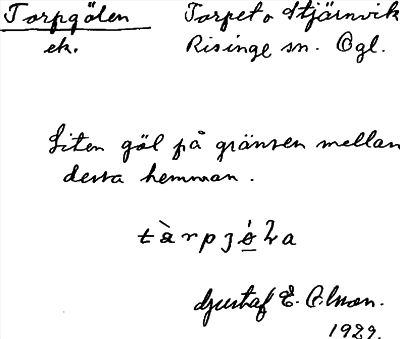 Torpgölen Torpet o Stjärnvik
ek. Risinge sn. Ögl.
Liten göl på gränsen mellan
dessa hemman.
Gustaf E. Olsson.
1929.